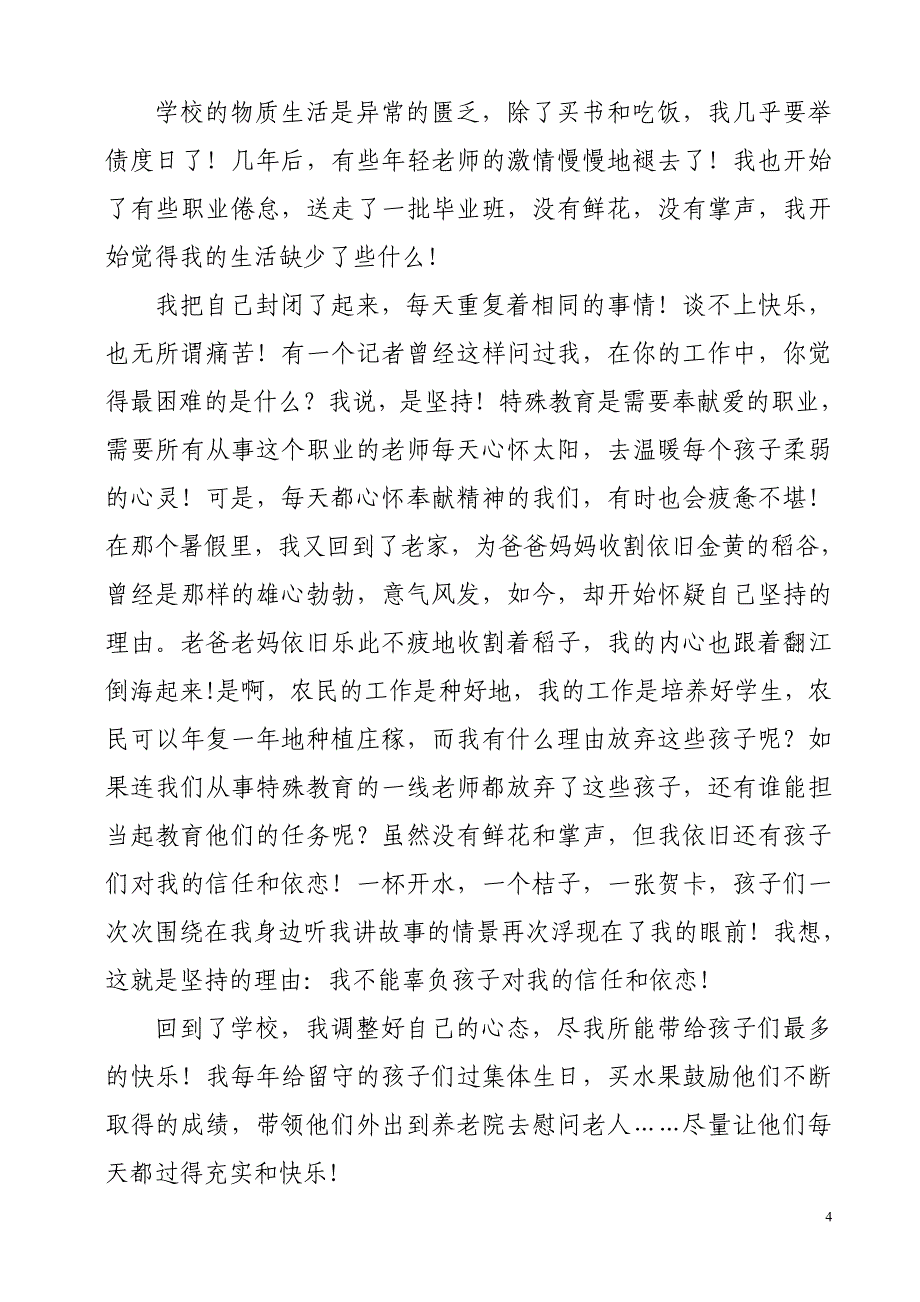 学校的物质生活是异常的匮乏，除了买书和吃饭，我几乎要举
债度日了！几年后，有些年轻老师的激情慢慢地褪去了！我也开始
了有些职业倦怠，送走了一批毕业班，没有鲜花，没有掌声，我开
始觉得我的生活缺少了些什么！
我把自己封闭了起来，每天重复着相同的事情！谈不上快乐，
也无所谓痛苦！有一个记者曾经这样问过我，在你的工作中，你觉
得最困难的是什么？我说，是坚持！特殊教育是需要奉献爱的职业，
需要所有从事这个职业的老师每天心怀太阳，去温暖每个孩子柔弱
的心灵！可是，每天都心怀奉献精神的我们，有时也会疲惫不堪！
在那个暑假里，我又回到了老家，为爸爸妈妈收割依旧金黄的稻谷，
曾经是那样的雄心勃勃，意气风发，如今，却开始怀疑自己坚持的
理由。老爸老妈依旧乐此不疲地收割着稻子，我的内心也跟着翻江
倒海起来!是啊，农民的工作是种好地，我的工作是培养好学生，农
民可以年复一年地种植庄稼，而我有什么理由放弃这些孩子呢？如
果连我们从事特殊教育的一线老师都放弃了这些孩子，还有谁能担
当起教育他们的任务呢？虽然没有鲜花和掌声，但我依旧还有孩子
们对我的信任和依恋！一杯开水，一个桔子，一张贺卡，孩子们一
次次围绕在我身边听我讲故事的情景再次浮现在了我的眼前！我想，
这就是坚持的理由：我不能辜负孩子对我的信任和依恋！
回到了学校，我调整好自己的心态，尽我所能带给孩子们最多
的快乐！我每年给留守的孩子们过集体生日，买水果鼓励他们不断
取得的成绩，带领他们外出到养老院去慰问老人……尽量让他们每
天都过得充实和快乐！
4